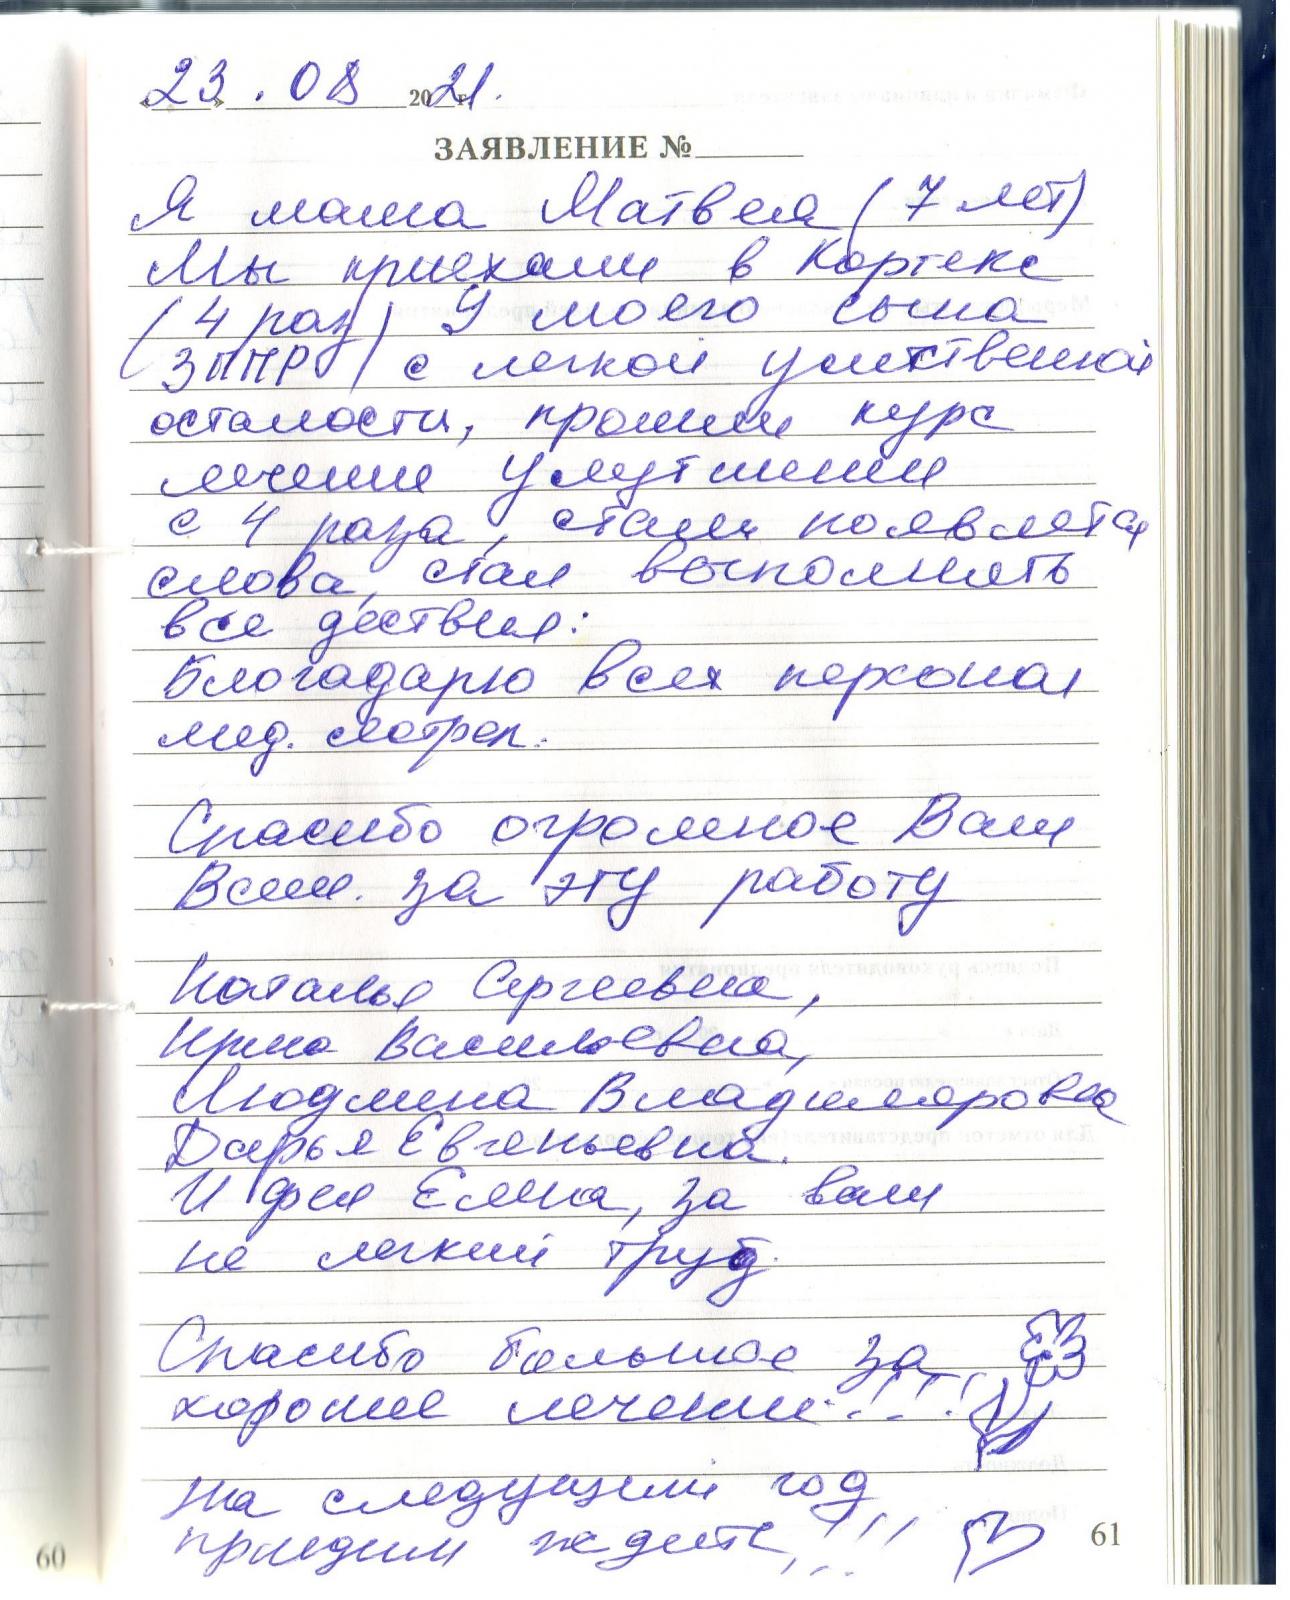 23.08 2021г.
ЗАЯВЛЕНИЕ №
Я мама Матвея (7 лет)
Мы приехали в Кортекс
(4 раз) У моего сына
(ЗППР) с легкой умственной
осталости, прошли курс
лечение улутшении
с 4 раза, стали появлятся
слова, стал выполнять
все дествия:
Благодарю всех персонал
мед.
Спасибо огромное Вам
Всем. за эту работу
Наталья Сергеевна,
Ирина Васильевна,
Людмила Владимировна
Дарья Евгеньевна.
И фея Елена, за ваш
не легкий труд.
Спасибо большое за
хорошее лечение!!!
На следущий год
приедим ждите!!!
60
61